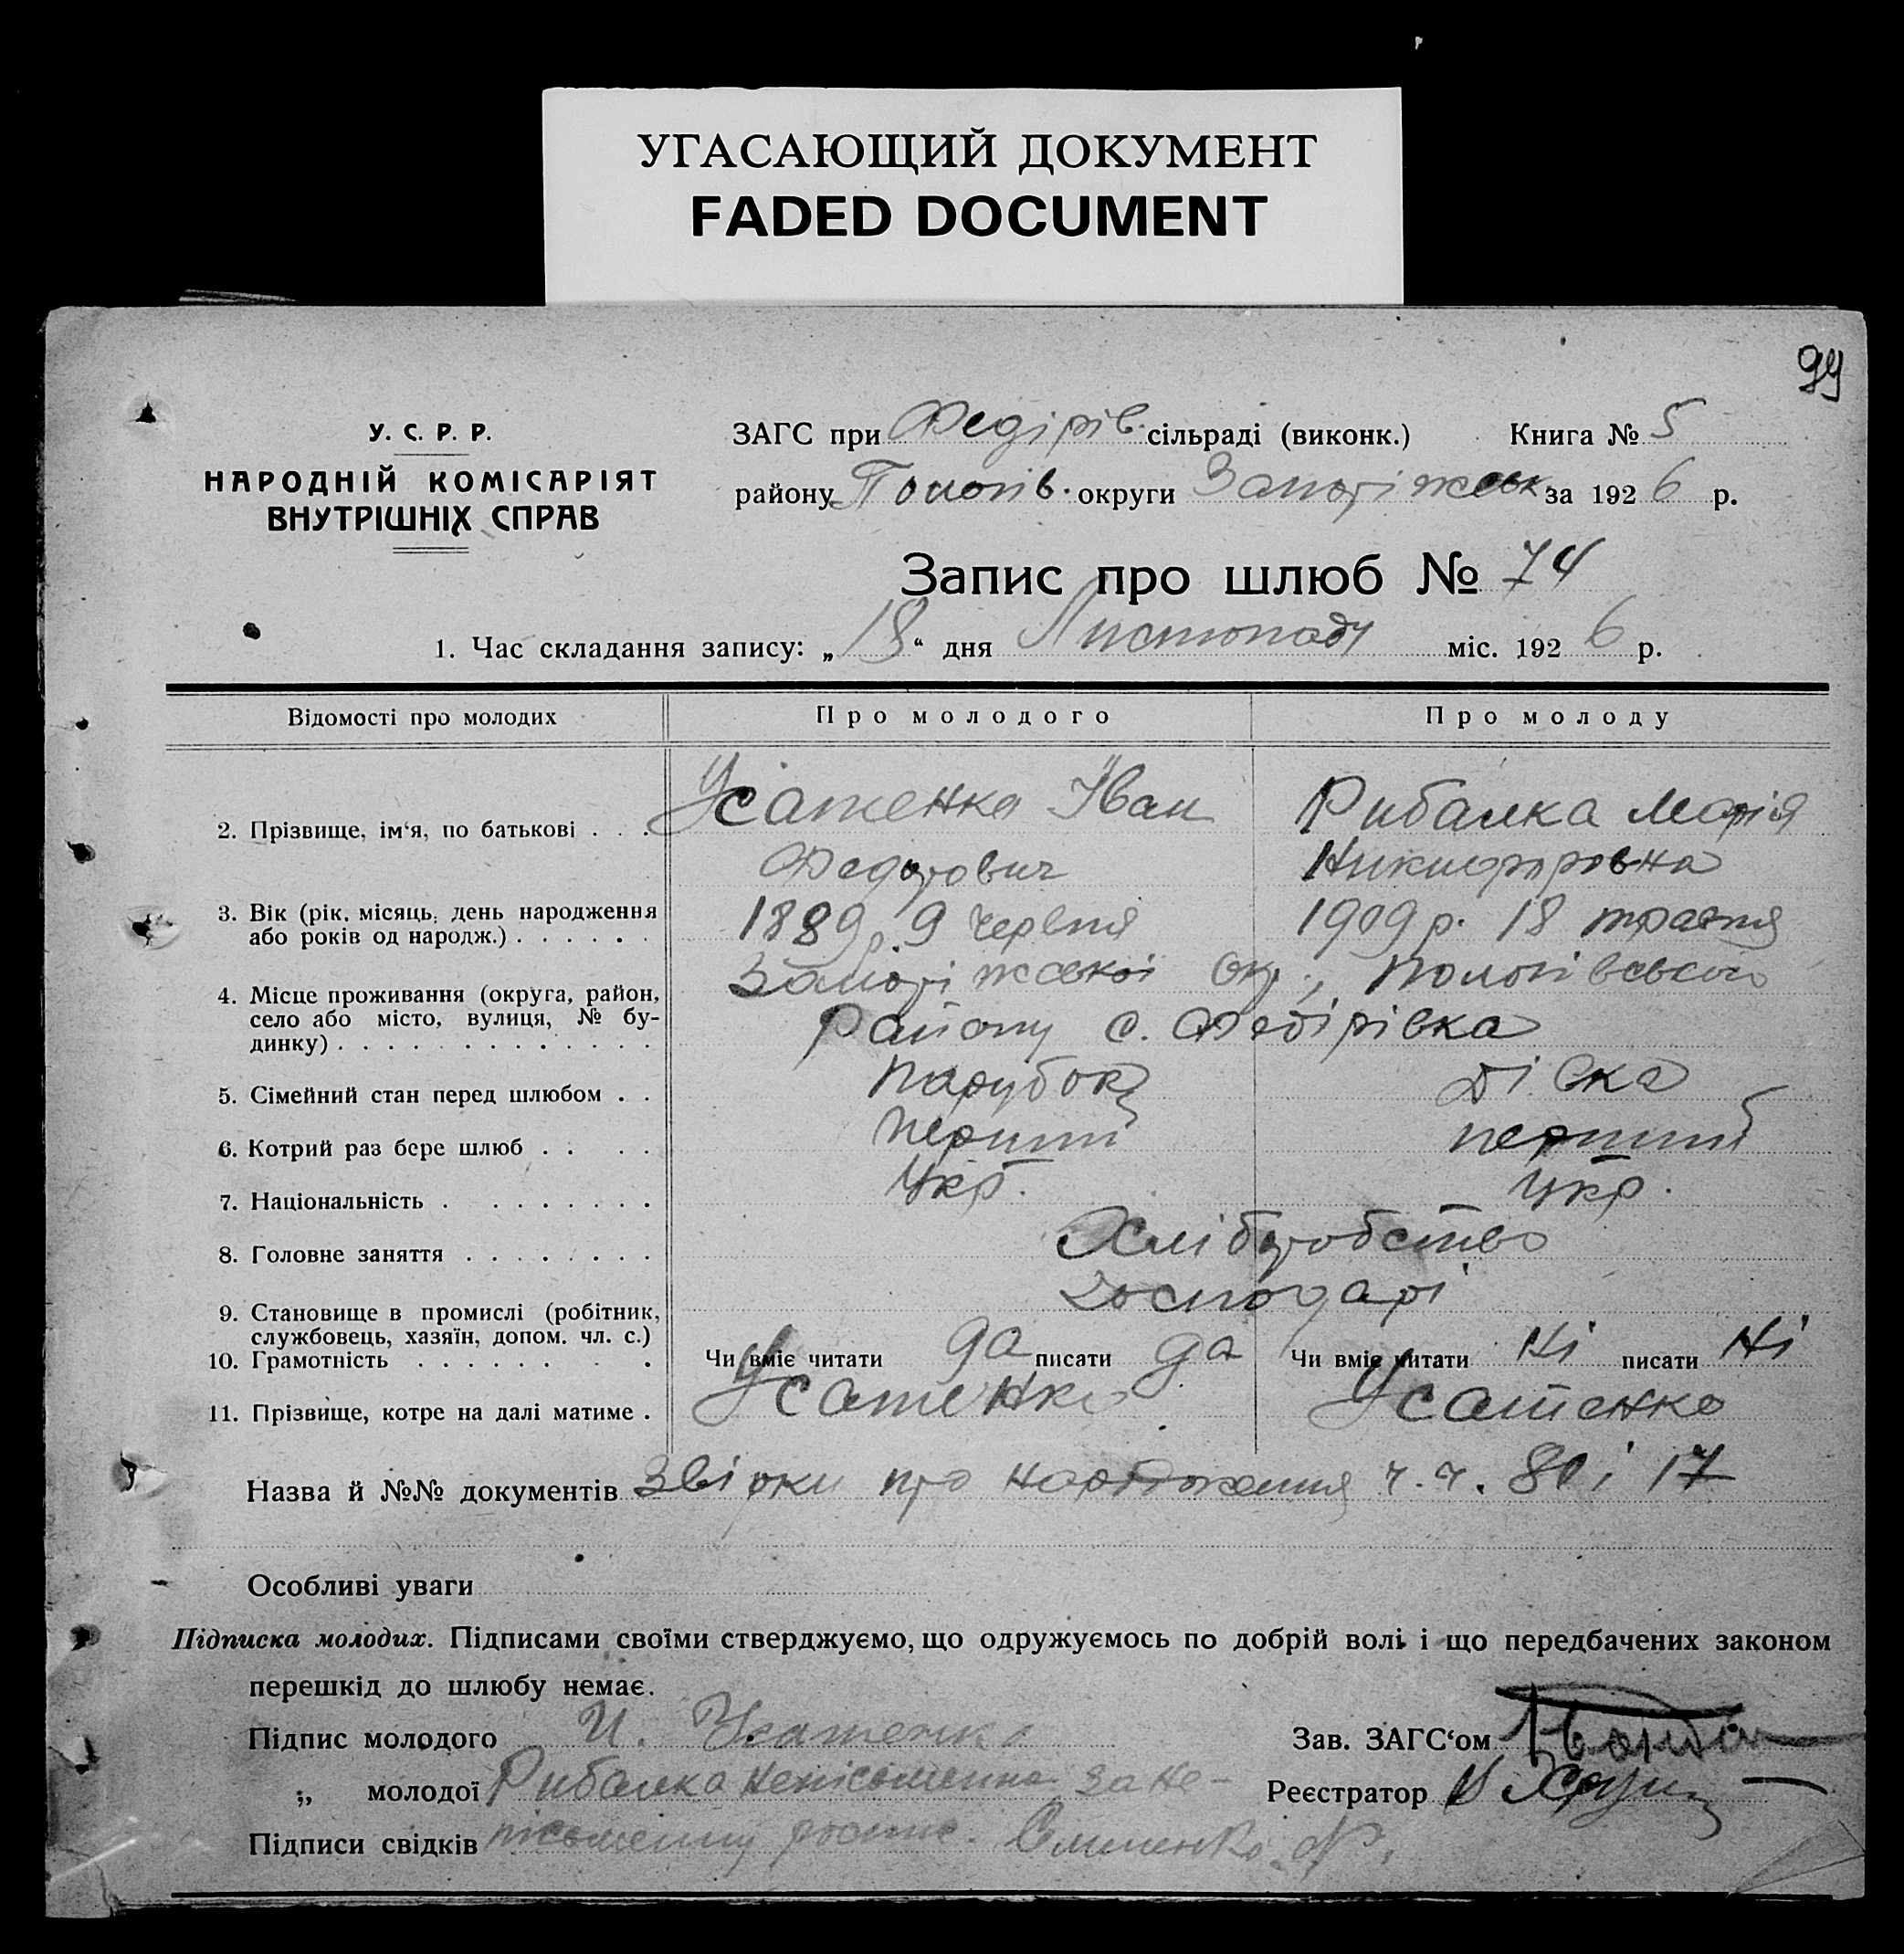 УГАСАЮЩИЙ ДОКУМЕНТ
FADED DOCUMENT
99
У. С. Р. Р.
НАРОДНІЙ КОМІСАРІЯТ
ВНУТРІШНІХ СПРАВ
ЗАГС при Федірів. сільраді (виконк.) Книга № 5
району Пологів. округи Запоріжськ за 1926 р.
Запис про шлюб № 74
1. Час складання запису: „18“ дня Листопаду міс. 1926 р.
Відомості про молодих Про молодого Про молоду
2. Прізвище, ім‘я, по батькові . . . Усатенко Іван Рибалка Марія
Федорович Никифоровна
3. Вік (рік, місяць, день народження 1889 р. 9 червня 1909 р. 18 травня
або років од народж.) . . . . . .
4. Місце проживання (округа, район, Запоріжської окр., Пологівського
село або місто, вулиця, № бу- Району с. Федірівка
динку) . . . . . . . . . . . . .
5. Сімейний стан перед шлюбом . . Парубок Дівка
6. Котрий раз бере шлюб . . . . перший перший
7. Національність . . . . . . . . Укр. Укр.
8. Головне заняття . . . . . . . Хліборобство
9. Становище в промислі (робітник, Господарі
службовець, хазяїн, допом. чл. с.)
10. Грамотність . . . . . . . . Чи вміє читати да писати да Чи вміє читати Ні писати Ні
11. Прізвище, котре на далі матиме . Усатенко Усатенко
Назва й №№ документів Звірки про народження ч.ч. 80 і 17
Особливі уваги
Підписка молодих. Підписами своїми стверджуємо, що одружуємось по добрій волі і що передбачених законом
перешкід до шлюбу немає.
Підпис молодого И. Усатенко Зав. ЗАГС‘ом
„ молодої Рибалка непісьменна за не- Реєстратор
Підписи свідків пісьменну роспис.